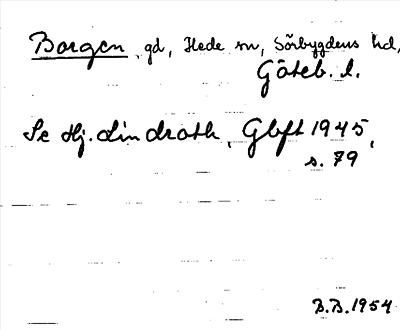 Borgen gd, Hede sn, Sörbygdens hd,
Göteb. l.
Se Hj. Lindroth, Gbft 1945,
s. 79
B.B. 1954